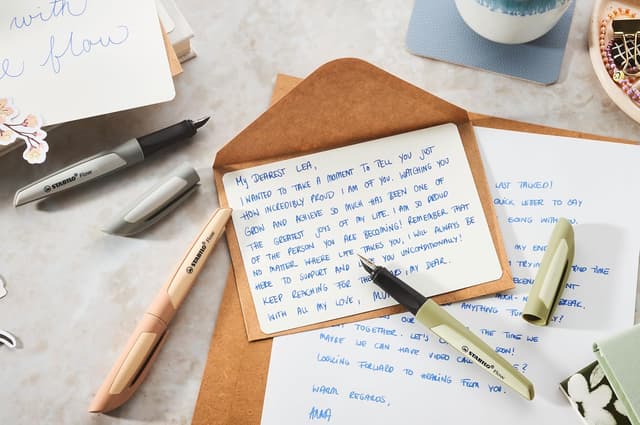 with
flow
STABILO Flow
STABILO
MY DEAREST LEA,
I WANTED TO TAKE A MOMENT TO TELL YOU JUST
HOW INCREDIBLY PROUD I AM OF YOU. WATCHING YOU
GROW AND ACHIEVE SO MUCH HAS BEEN ONE OF
THE GREATEST JOYS OF MY LIFE. I AM SO PROUD
OF THE PERSON YOU ARE BECOMING! REMEMBER THAT
NO MATTER WHERE LIFE TAKES YOU, I WILL ALWAYS BE
HERE TO SUPPORT AND YOU UNCONDITIONALLY!
KEEP REACHING FOR MY DEAR.
WITH ALL MY LOVE,
STABILO Flow
LAST TALKED!
QUICK LETTER TO SAY
GOING WITH YOU.
MY
TIME
BREAK.
ANYTHING
OUR THE TIME WE
TOGETHER. LET'S SOON!
MAYBE WE CAN HAVE VIDEO CALL
LOOKING FORWARD TO HEARING FROM YOU.
WARM REGARDS,
ANNA